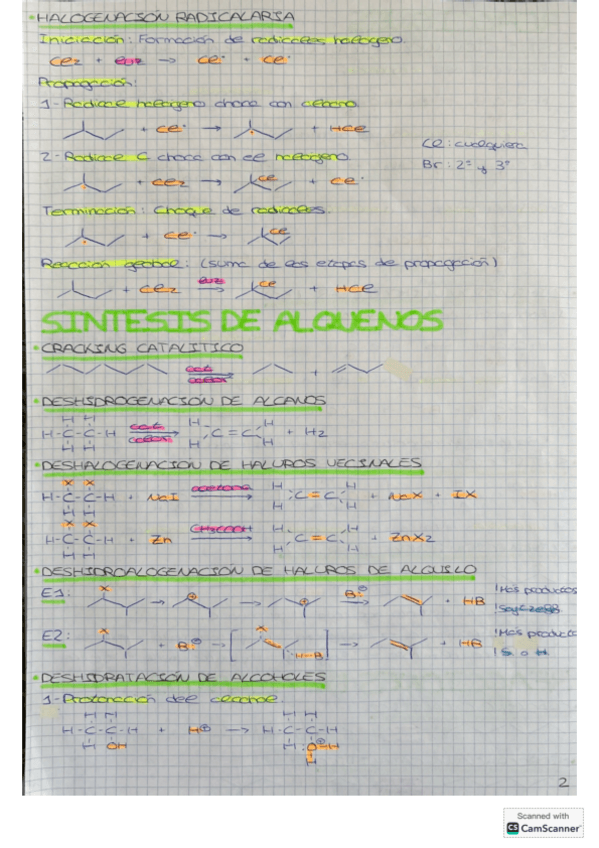 • HALOGENACIÓN RADICALARIA
Iniciación: Formación de radicales halógeno.
Cl2 + luz → Cl· + Cl·
Propagación:
1- Radical halógeno choca con alcano.
+ Cl· → + HCl
Cl: cualquiera
2- Radical C choca con el halógeno.
Br: 2º y 3º
+ Cl2 → Cl + Cl·
Terminación: Choque de radicales.
+ Cl· → Cl
Reacción global: (suma de las etapas de propagación)
+ Cl2 luz → Cl + HCl
SINTESIS DE ALQUENOS
• CRACKING CATALITICO
cat. calor → +
• DESHIDROGENACION DE ALCANOS
H H H H
H-C-C-H cat. calor → C=C + H2
H H H H
• DESHALOGENACION DE HALUROS VECINALES
X X H H
H-C-C-H + NaI acetona → C=C + NaX + IX
H H H H
X X H H
H-C-C-H + Zn CH3COOH → C=C + ZnX2
H H H H
• DESHIDROALOGENACION DE HALUROS DE ALQUILO
E1: X → ⊕ → ⊕ B:⊖ → + HB
!Más productos
E2: X + B:⊖ → [X H-B] → + HB
!Más producto
• DESHIDRATACIÓN DE ALCOHOLES
1- Protonación del alcohol.
H H H H
H-C-C-H + H⊕ → H-C-C-H
H OH H :O⊕-H
H
2
Scanned with
CS CamScanner